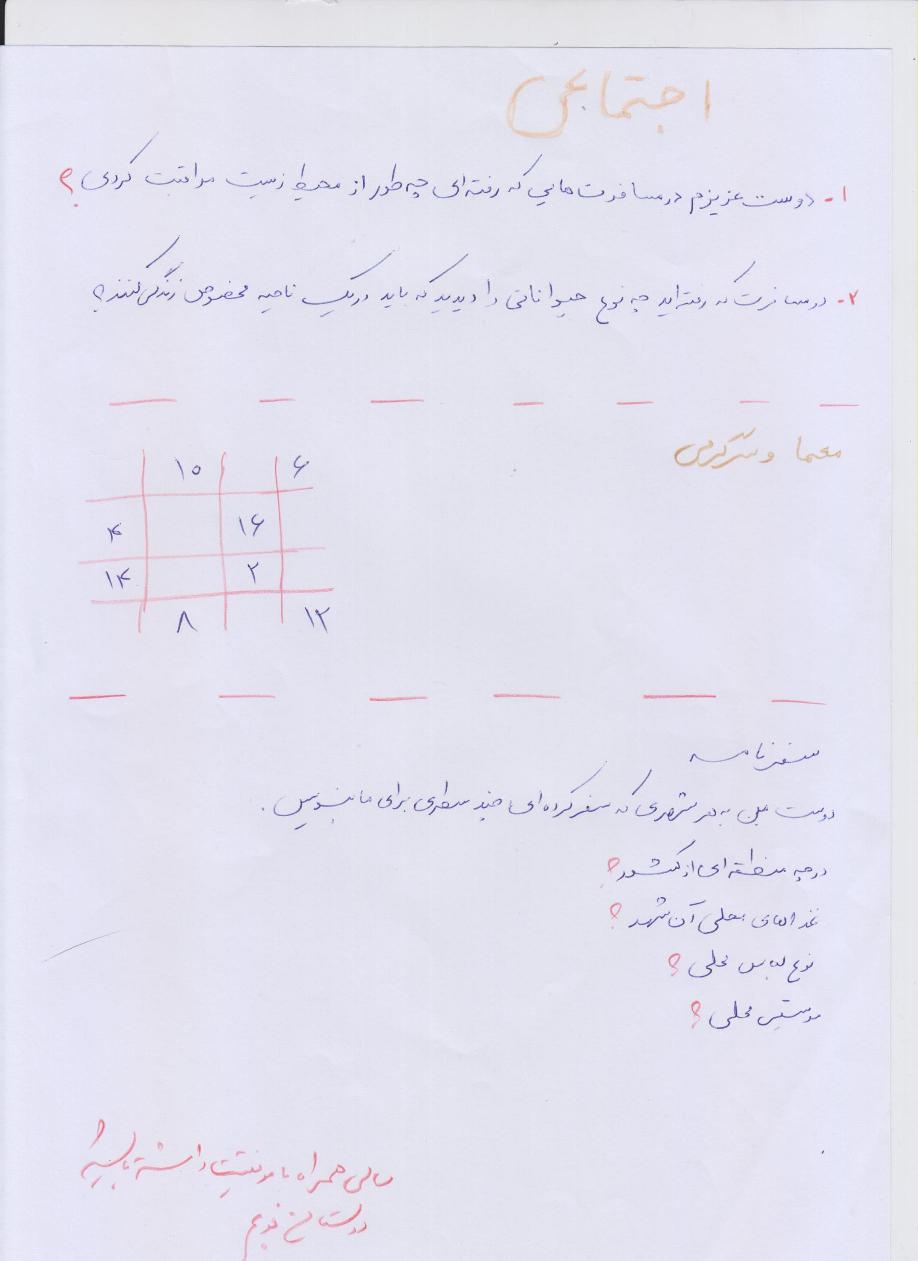 اجتماعی
۱- دوست عزیزم در مسافرت هایی که رفته ای چه طور از محیط زیست مراقبت کردی؟
۲- در مسافرت که رفته اید چه نوع حیواناتی را دیدید که باید در یک ناحیه مخصوص زندگی کنند؟
معما و سرگرمی
۱۰ ۶
۴ ۱۶
۱۴ ۲
۸ ۱۲
سفرنامه
دوست من به هر شهری که سفر کرده ای چند سطری برای ما بنویس.
در چه منطقه ای از کشور؟
غذاهای محلی آن شهر؟
نوع لباس محلی؟
موسیقی محلی؟
سالی همراه با موفقیت داشته باشید
دوستان خوبم